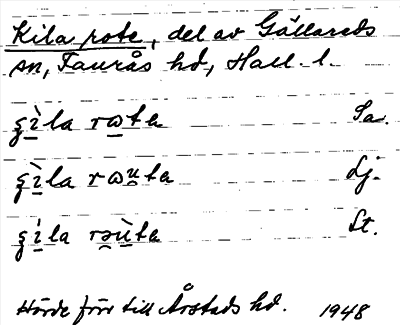 Kila rote, del av Gällareds
sn, Faurås hd, Hall. l.
ʂì̱la rω̱ta Sa.
ʂì̱la rωu̱ta Lj.
ʂí̱la rəù̱ta St.
Hörde förr till Årstads hd. 1948